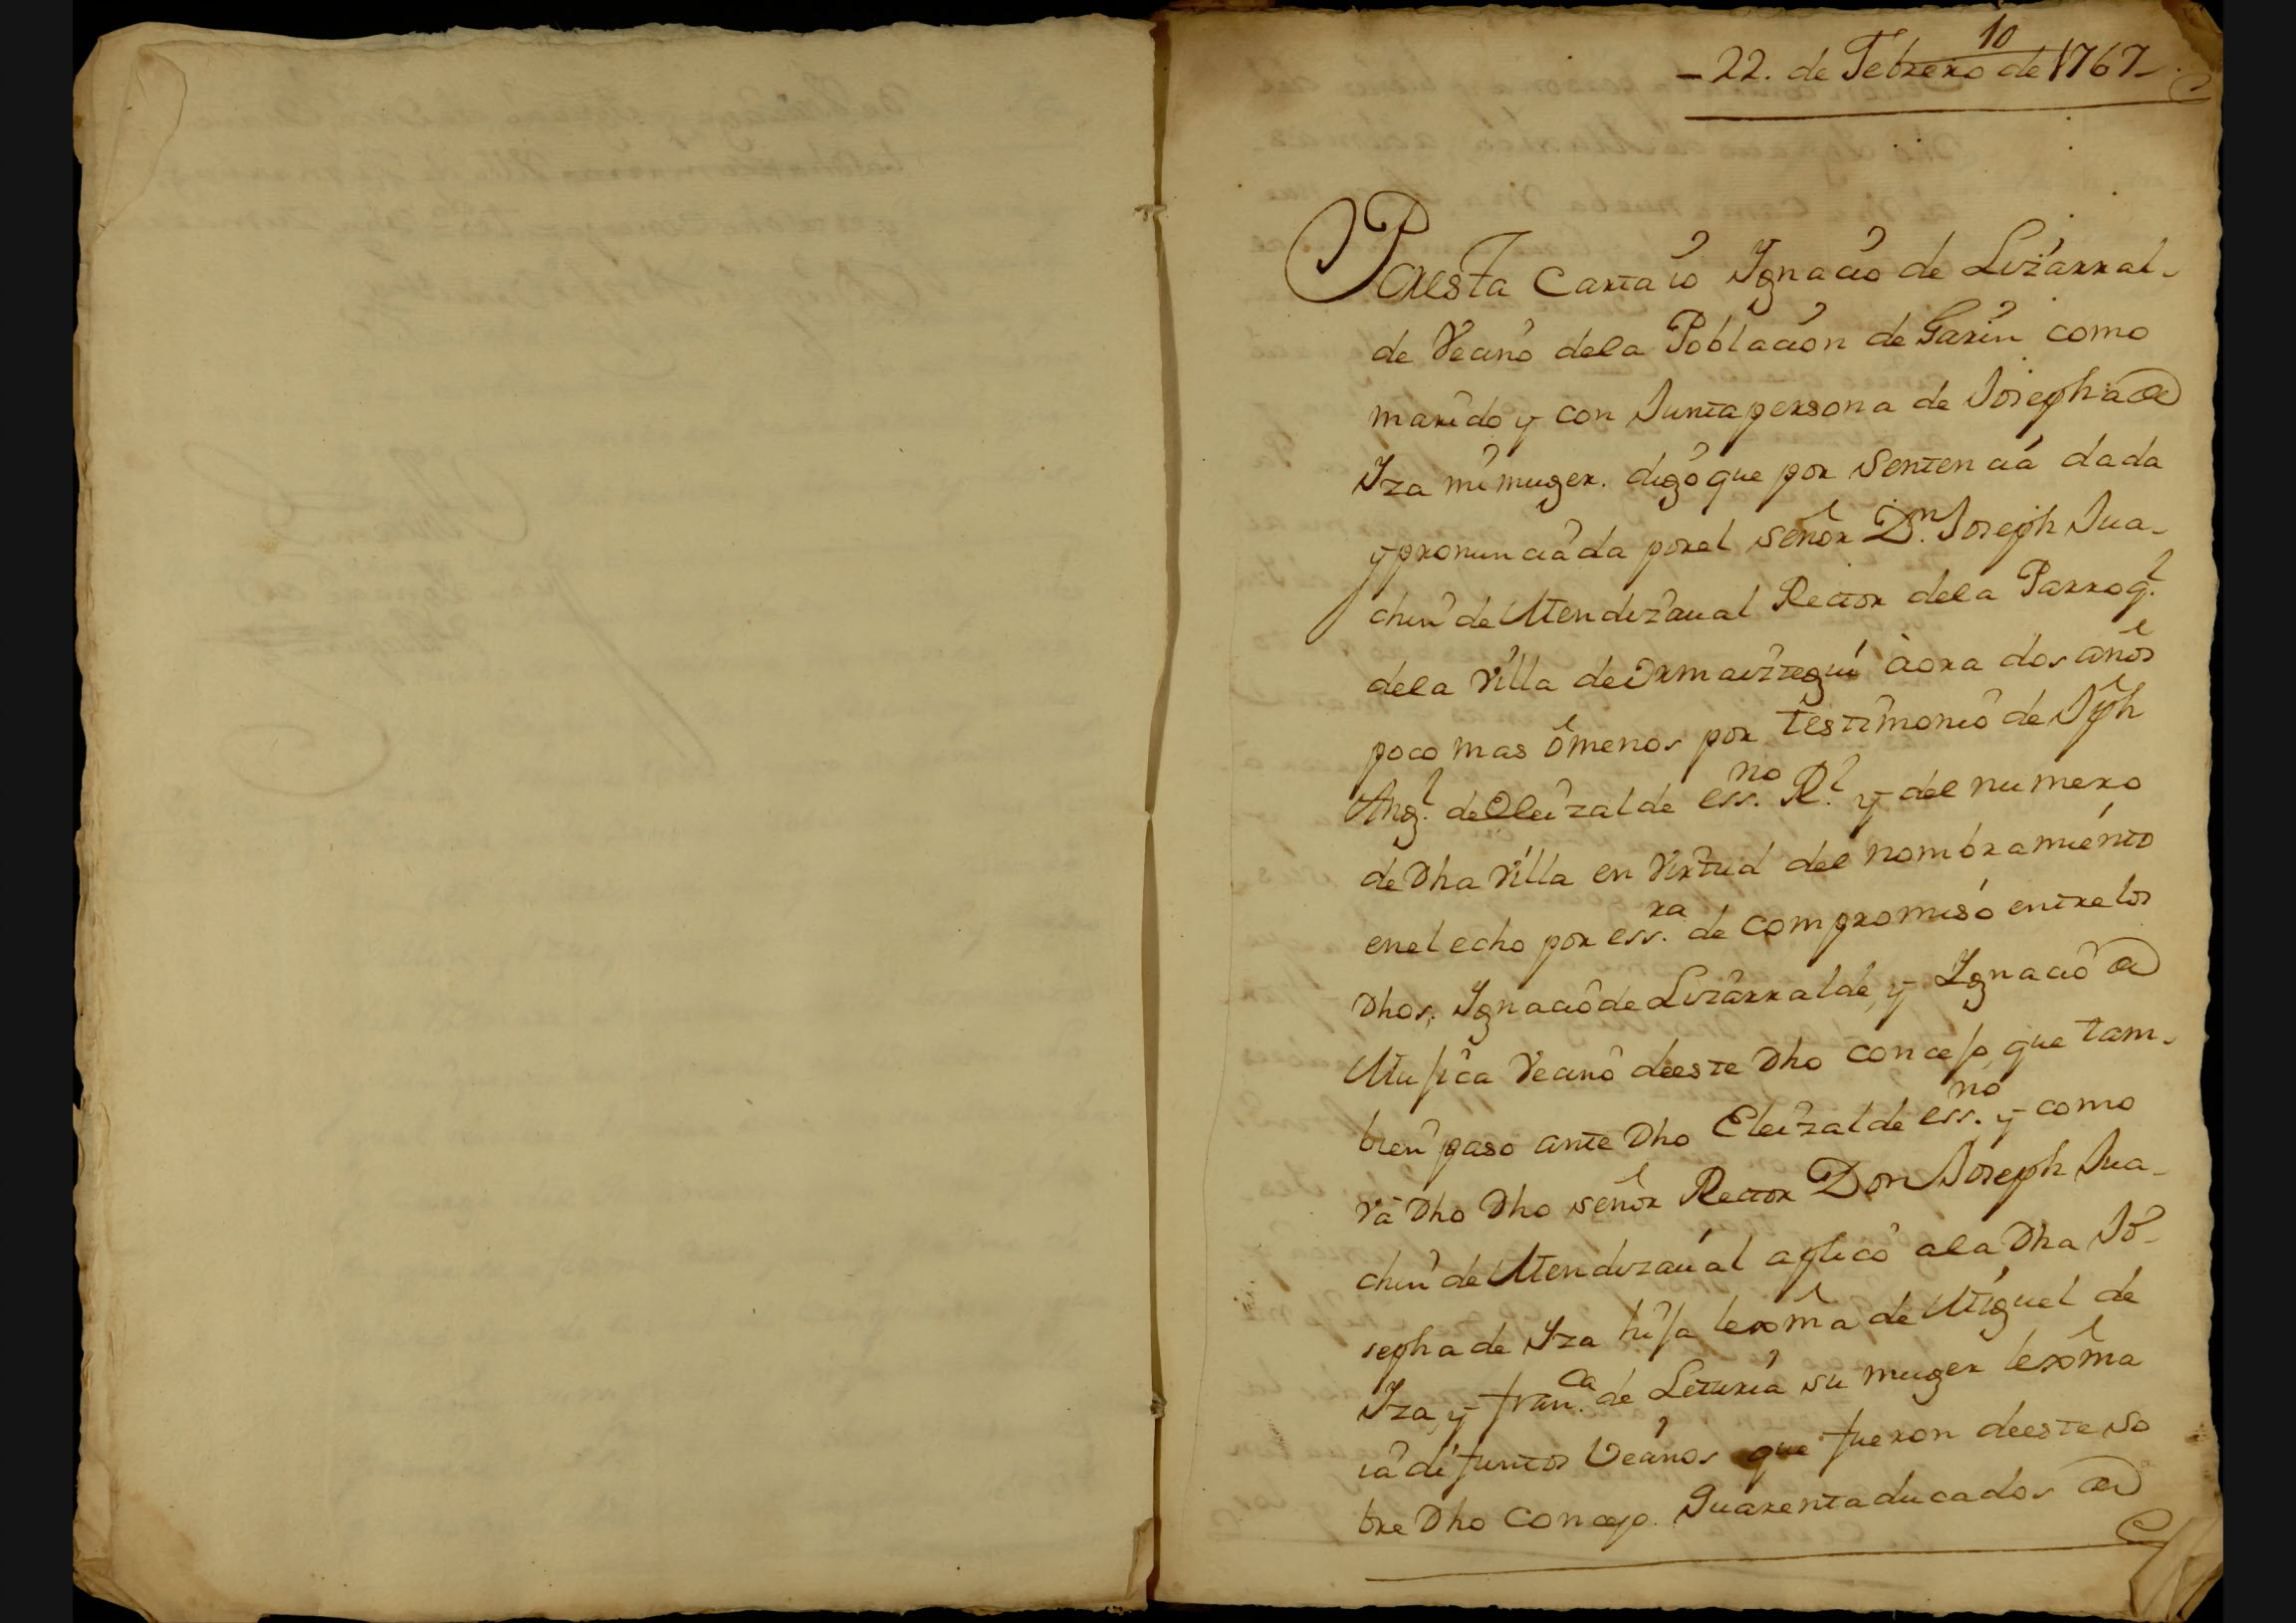 10
22. de Febrero de 1767
Por esta Carta io Ygnacio de Lizarral-
de Vecino dela Poblacion de Garin como
marido y con Junta persona de Josepha de
Yza mi muger. digo que por Sentencia dada
y pronunciada por el señor Dn. Joseph Jua-
chin de Mendizaual Rector dela Parroql.
dela Villa de Ormaiztegui aora dos años
poco mas ô menos por testimonio de Jph
Angl. de Eleizalde essno. Rl. y del numero
de Dha Villa en Virtud del nombramiento
en el echo por essra. de compromiso entre los
Dhos, Ygnacio de Lizarralde, y Ygnacio de
Mujica Vecino de este Dho concejo, que tam-
bien paso ante Dho Eleizalde essno. y como
va Dho Dho señor Rector Don Joseph Jua-
chin de Mendizaual aplico ala Dha Jo-
sepha de Yza hija lexma de Miguel de
Yza, y Franca. de Leturia su muger lexma
ia difuntos Vecinos que fueron de este so
bre Dho concejo. Quarenta ducados de